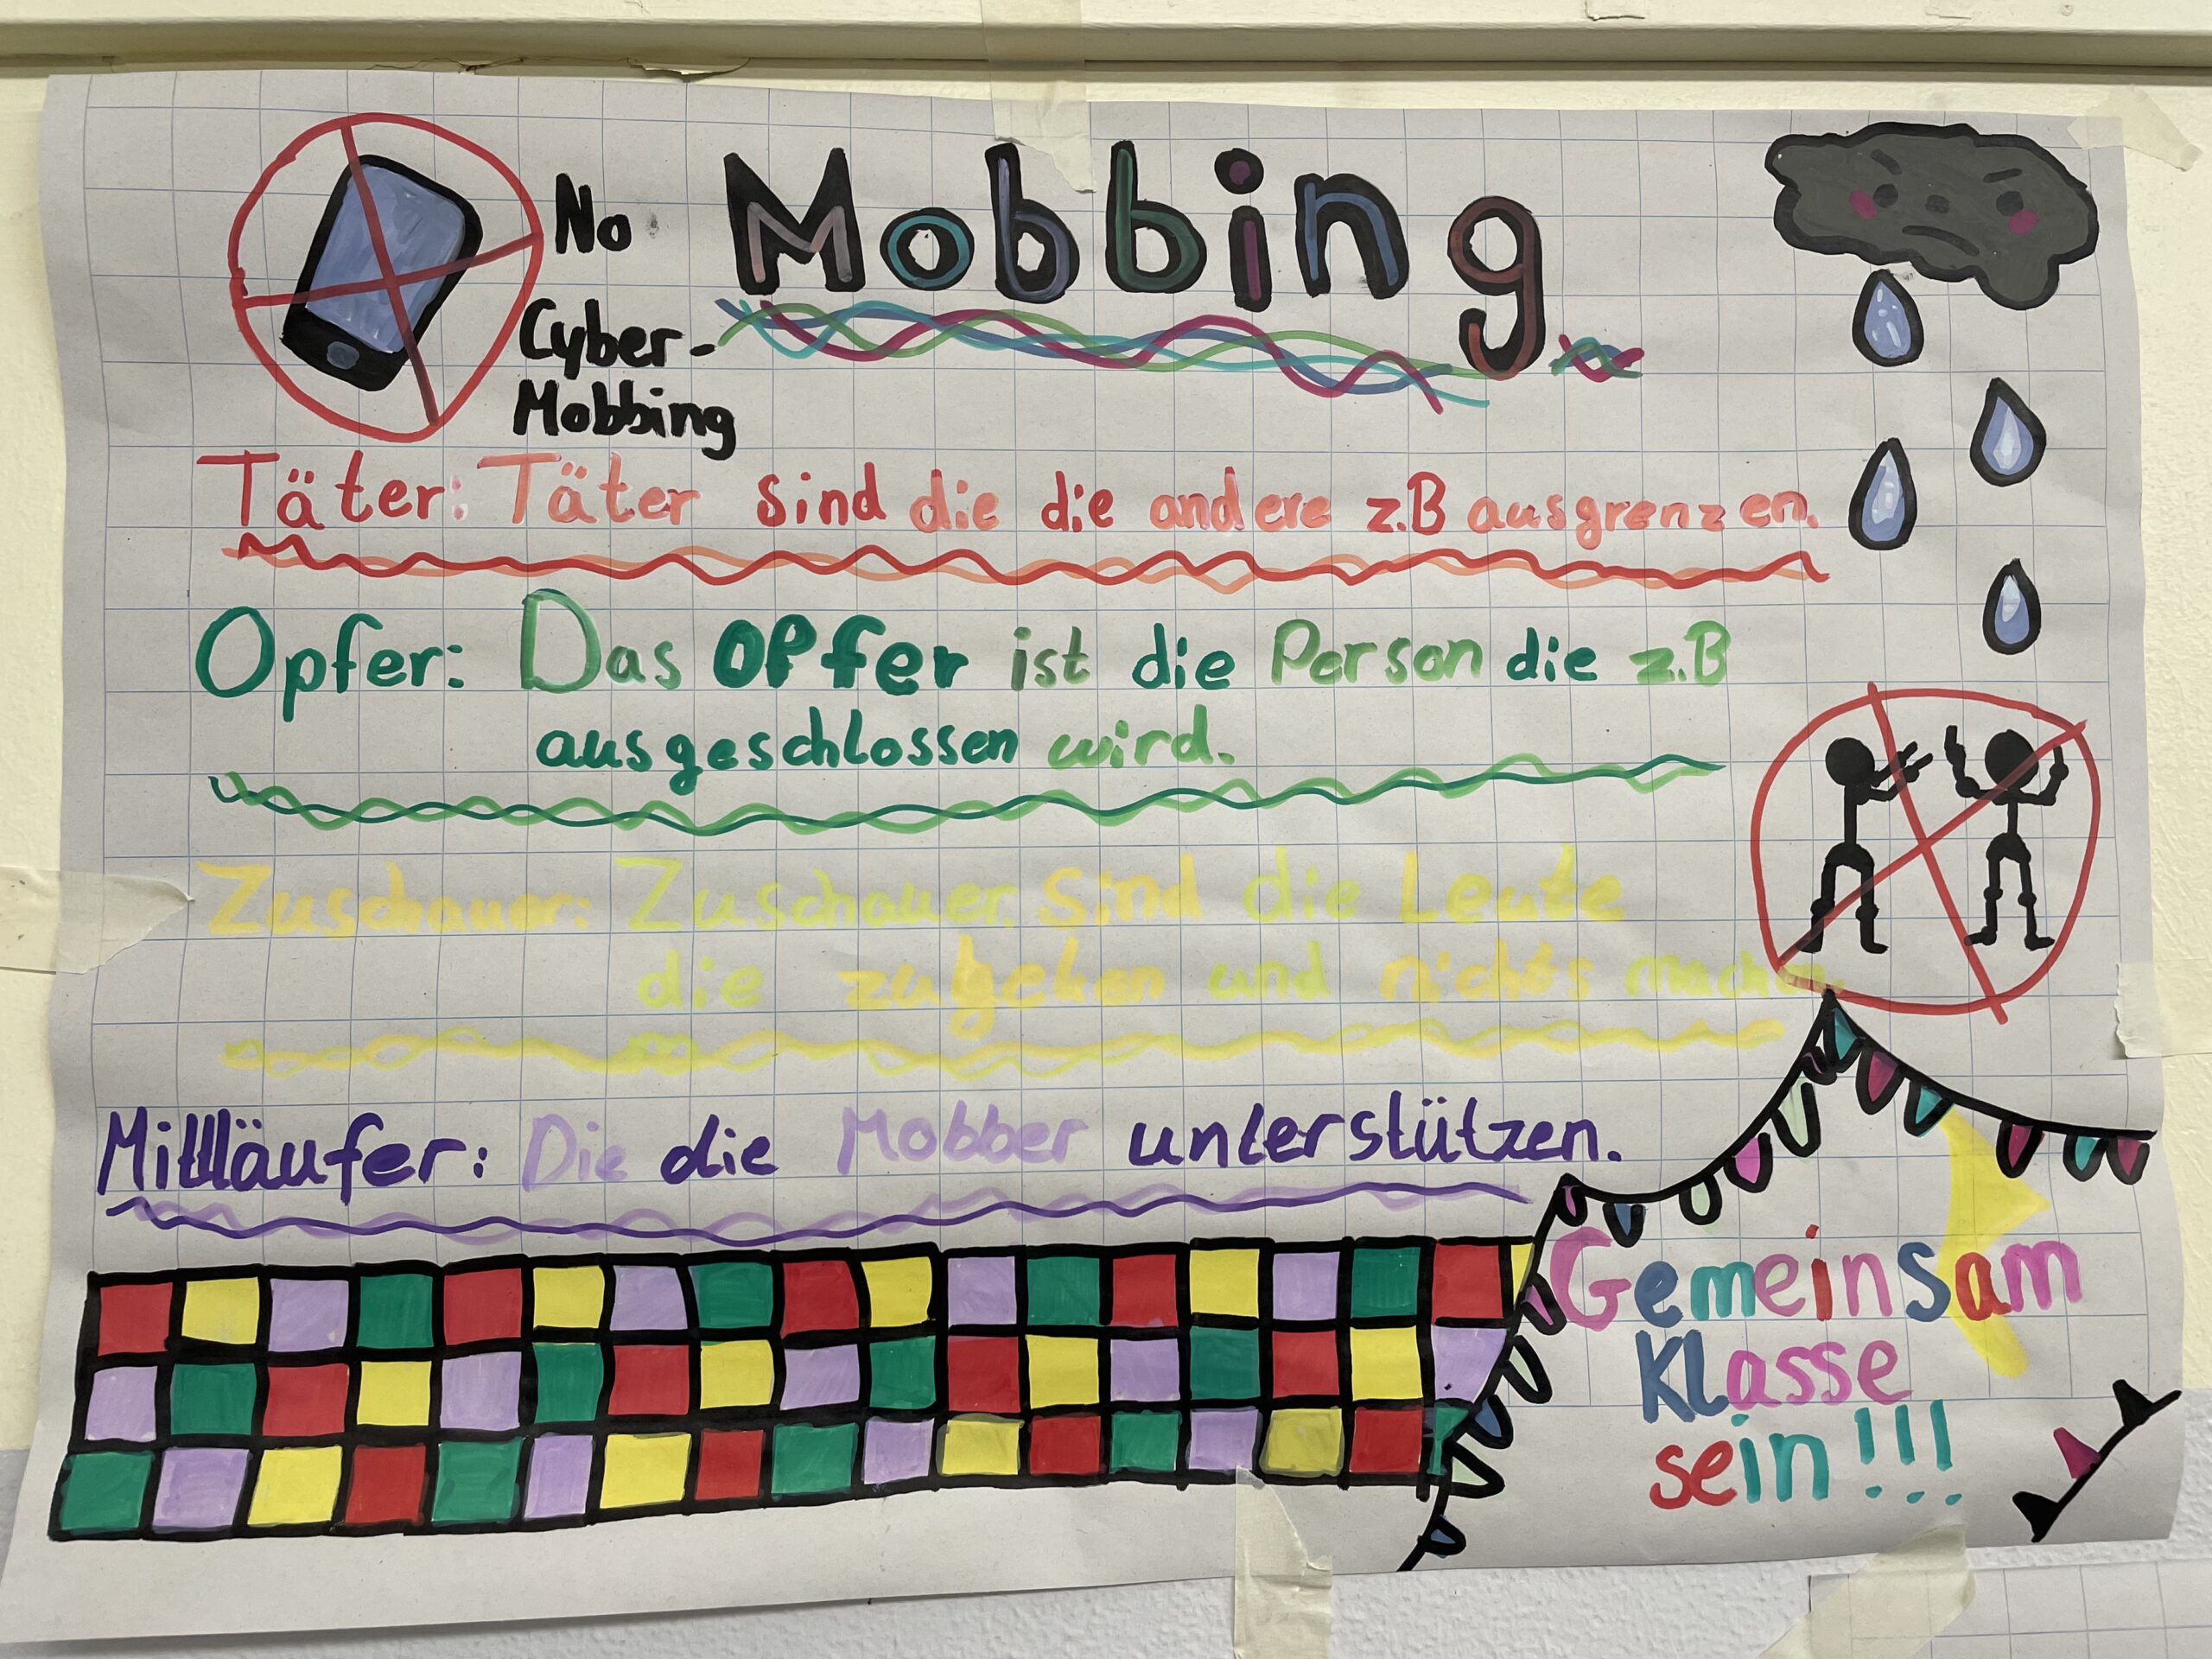 Mobbing
No
Cyber-
Mobbing
Täter: Täter sind die die andere z.B ausgrenzen.
Opfer: Das Opfer ist die Person die z.B
ausgeschlossen wird.
Zuschauer: Zuschauer sind die Leute
die zugehen und nichts machen.
Mittläufer: Die die Mobber unterstützen.
Gemeinsam
Klasse
sein!!!